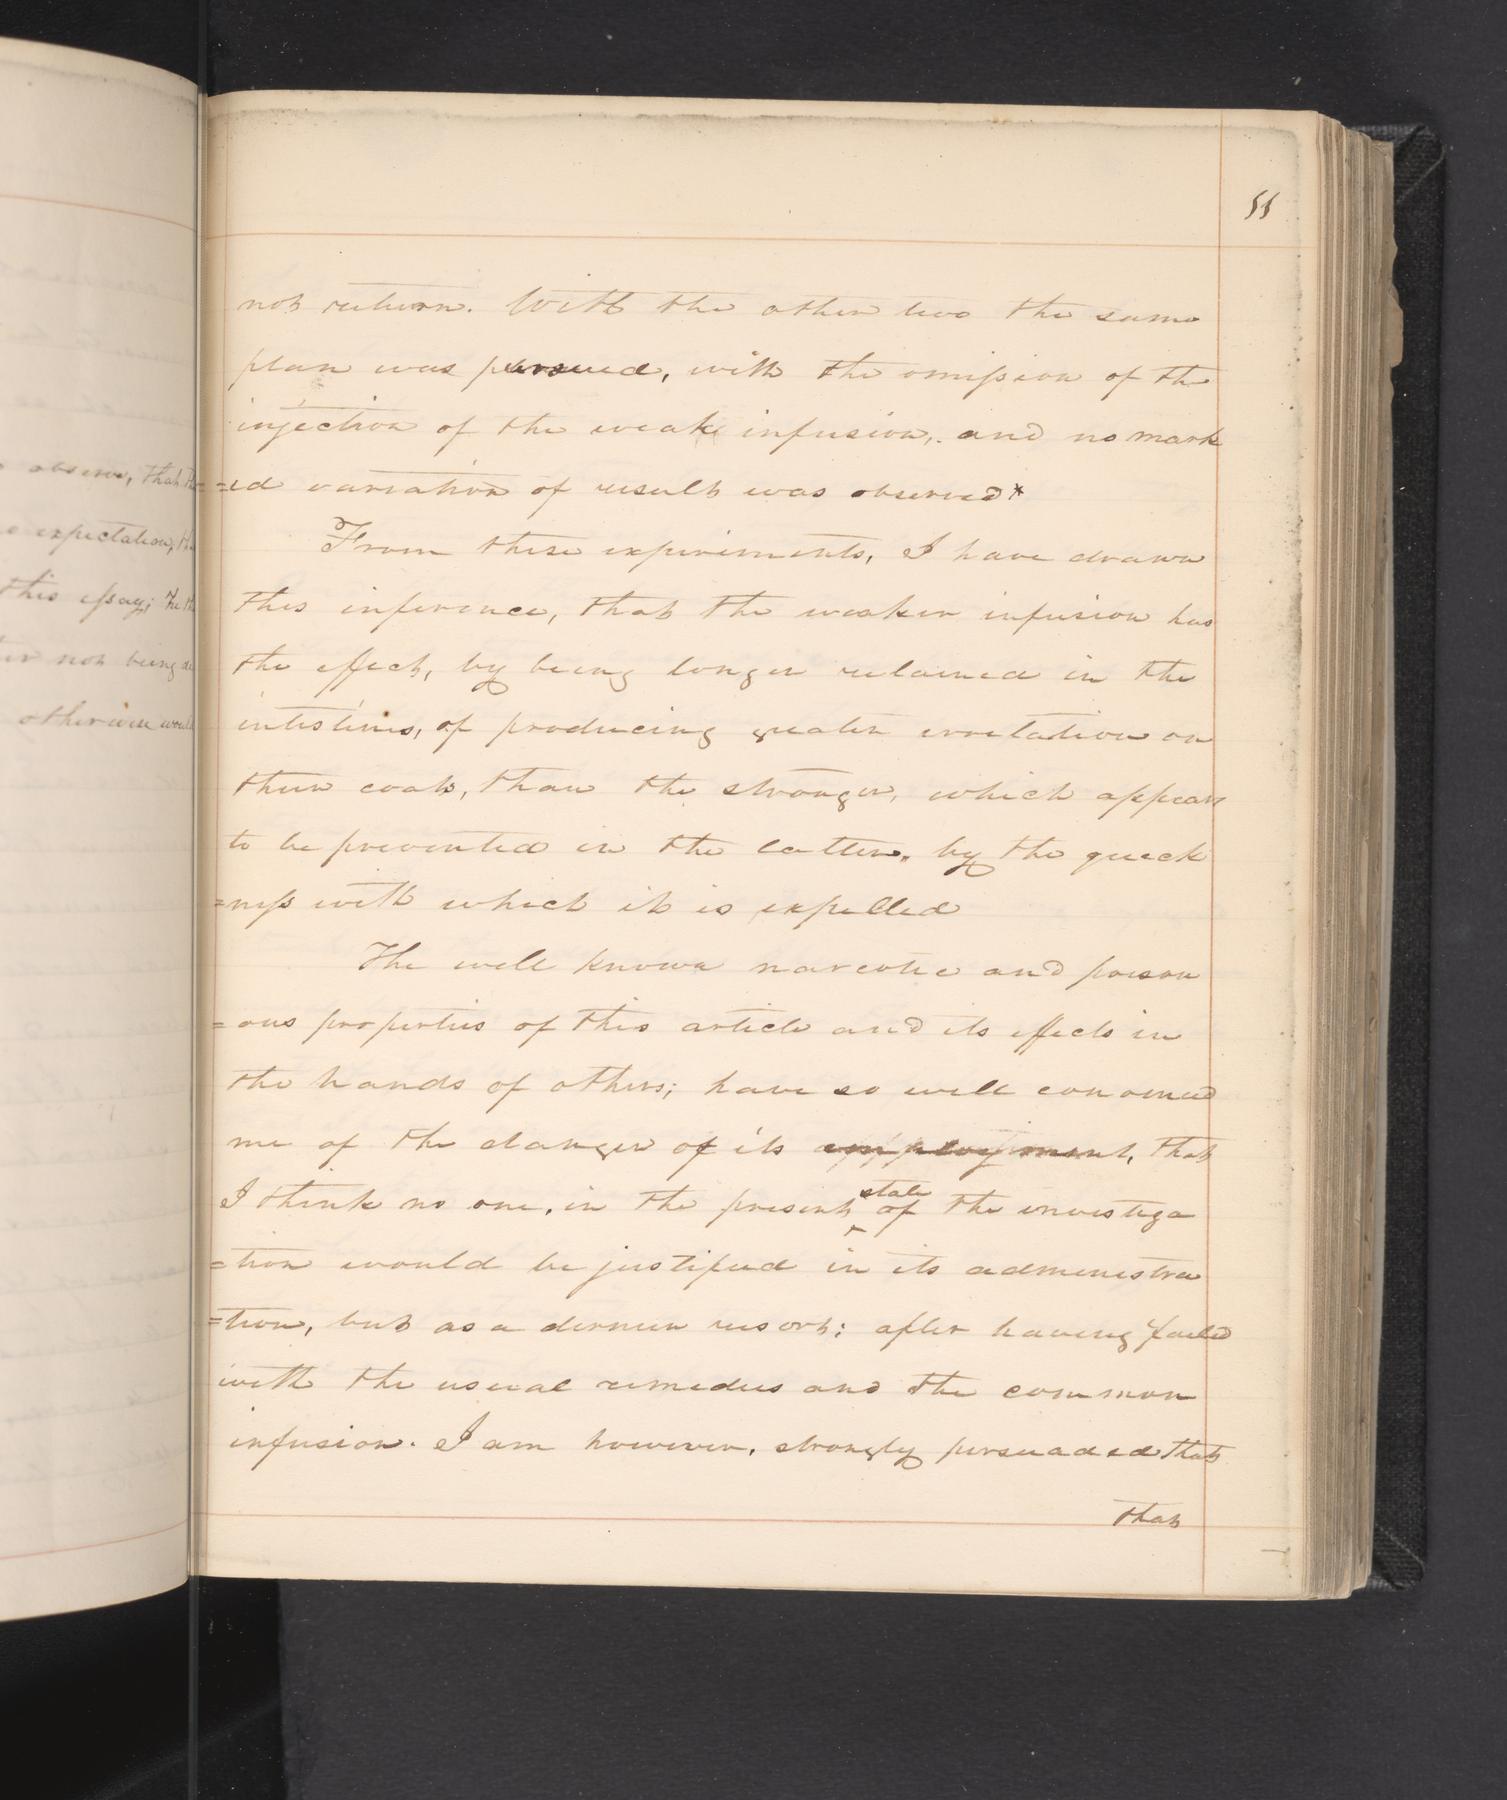 observe, that the
expectation, the
this essay; the th
ter not being de
otherwise would
55
not return. With the other two the same
plan was pursued, with the omission of the
injection of the weak infusion, and no mark
=ed variation of result was observed*
From these experiments, I have drawn
this inference, that the weaker infusion has
the effect, by being longer retained in the
intestines, of producing greater irritation on
their coats, than the stronger, which appears
to be prevented in the latter, by the quick
=ness with which it is expelled
The well known narcotic and poison
=ous properties of this article and its effects in
the hands of others; have so well convinced
me of the danger of its employment, that
I think no one, in the present state of the investiga
=tion would be justified in its administra
=tion, but as a dernier resort; after having failed
with the usual remedies and the common
infusion. I am however, strongly persuaded that
that